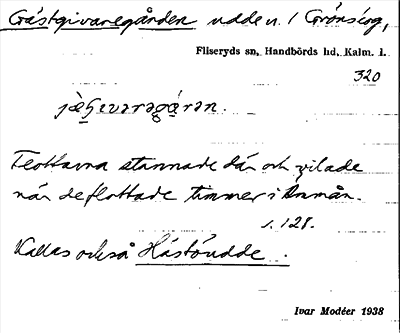 Gästgivaregården udde n. i Grönskog,
Fliseryds sn, Handbörds hd, Kalm. l.
320
Flottarna stannade där och vilade
när de flottade timmer i Emmån.
s. 128.
Kallas också Hästöudde.
Ivar Modéer 1938